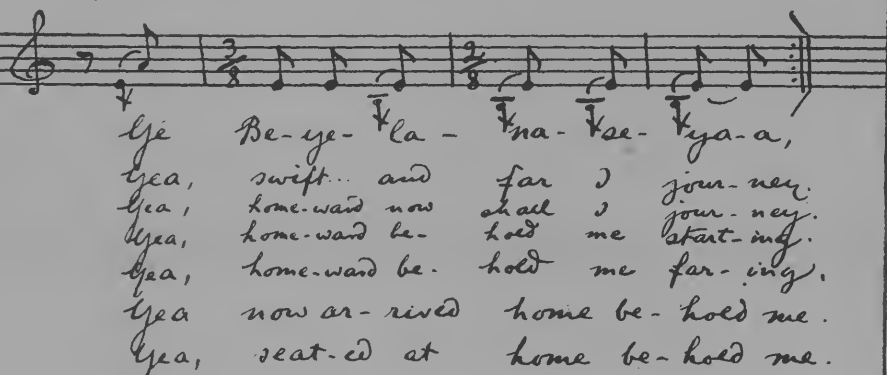 3/8 2/8
Ye Be-ye- la - na- se- ya-a,
Yea, swift... and far I jour-ney.
Yea, home-ward now shall I jour-ney.
Yea, home-ward be- hold me start-ing.
Yea, home-ward be- hold me far-ing.
Yea now ar-rived home be-hold me.
Yea, seat-ed at home be-hold me.